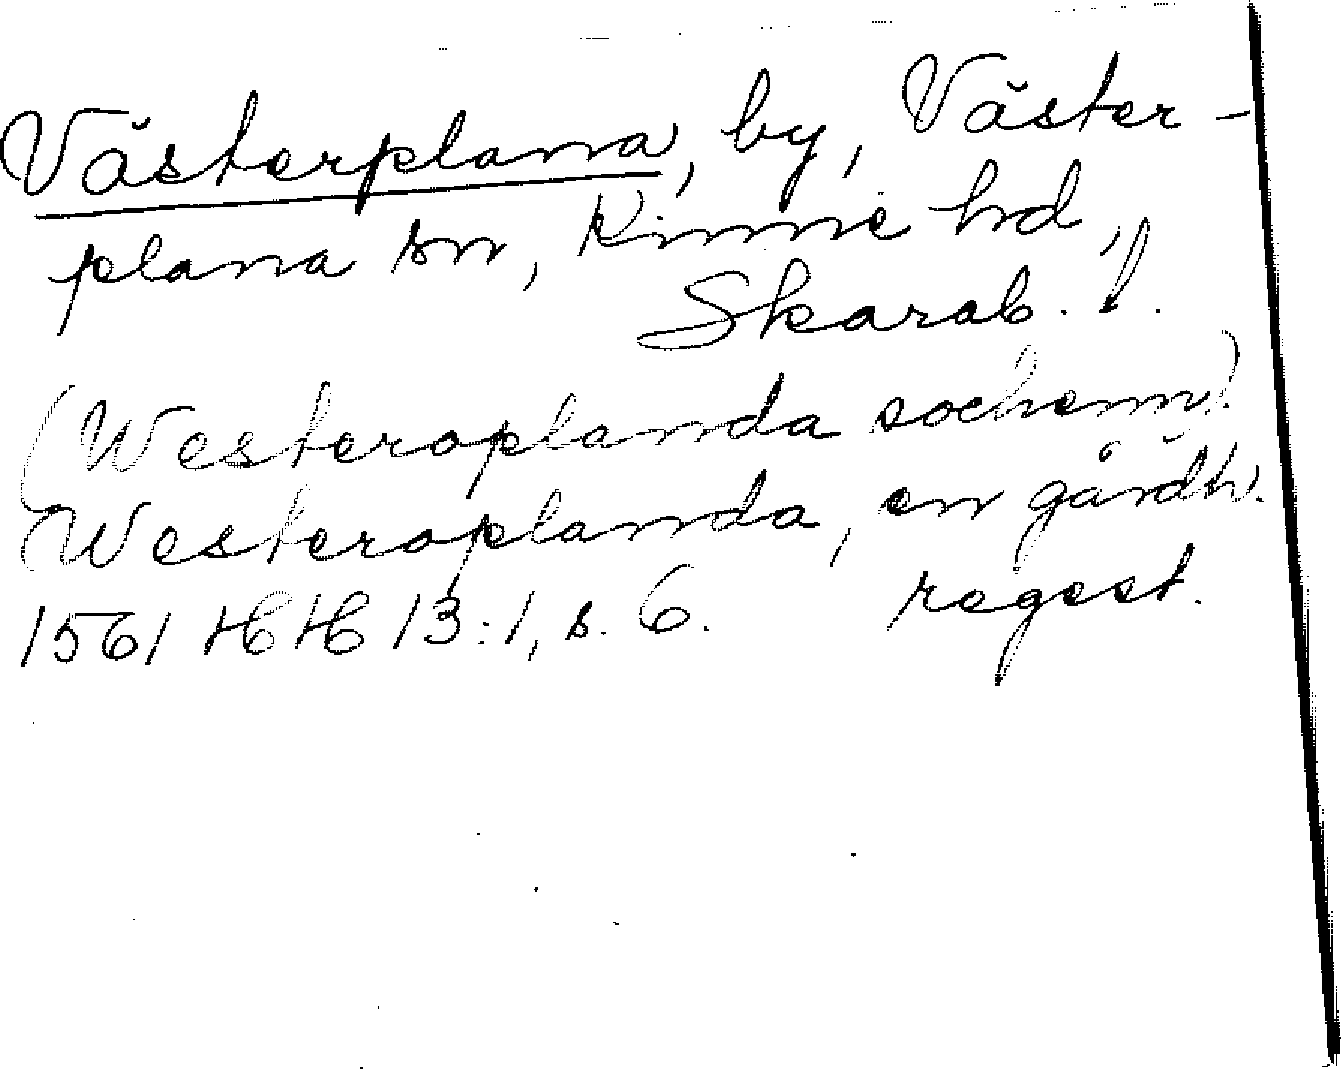 Västerplana, by, Väster-
plana sn, Kinne hd,
Skarab. l.
(Westeroplanda sochenn)
Westeroplanda, en gårdh.
1561 HH 13:1, s. 6. regest.